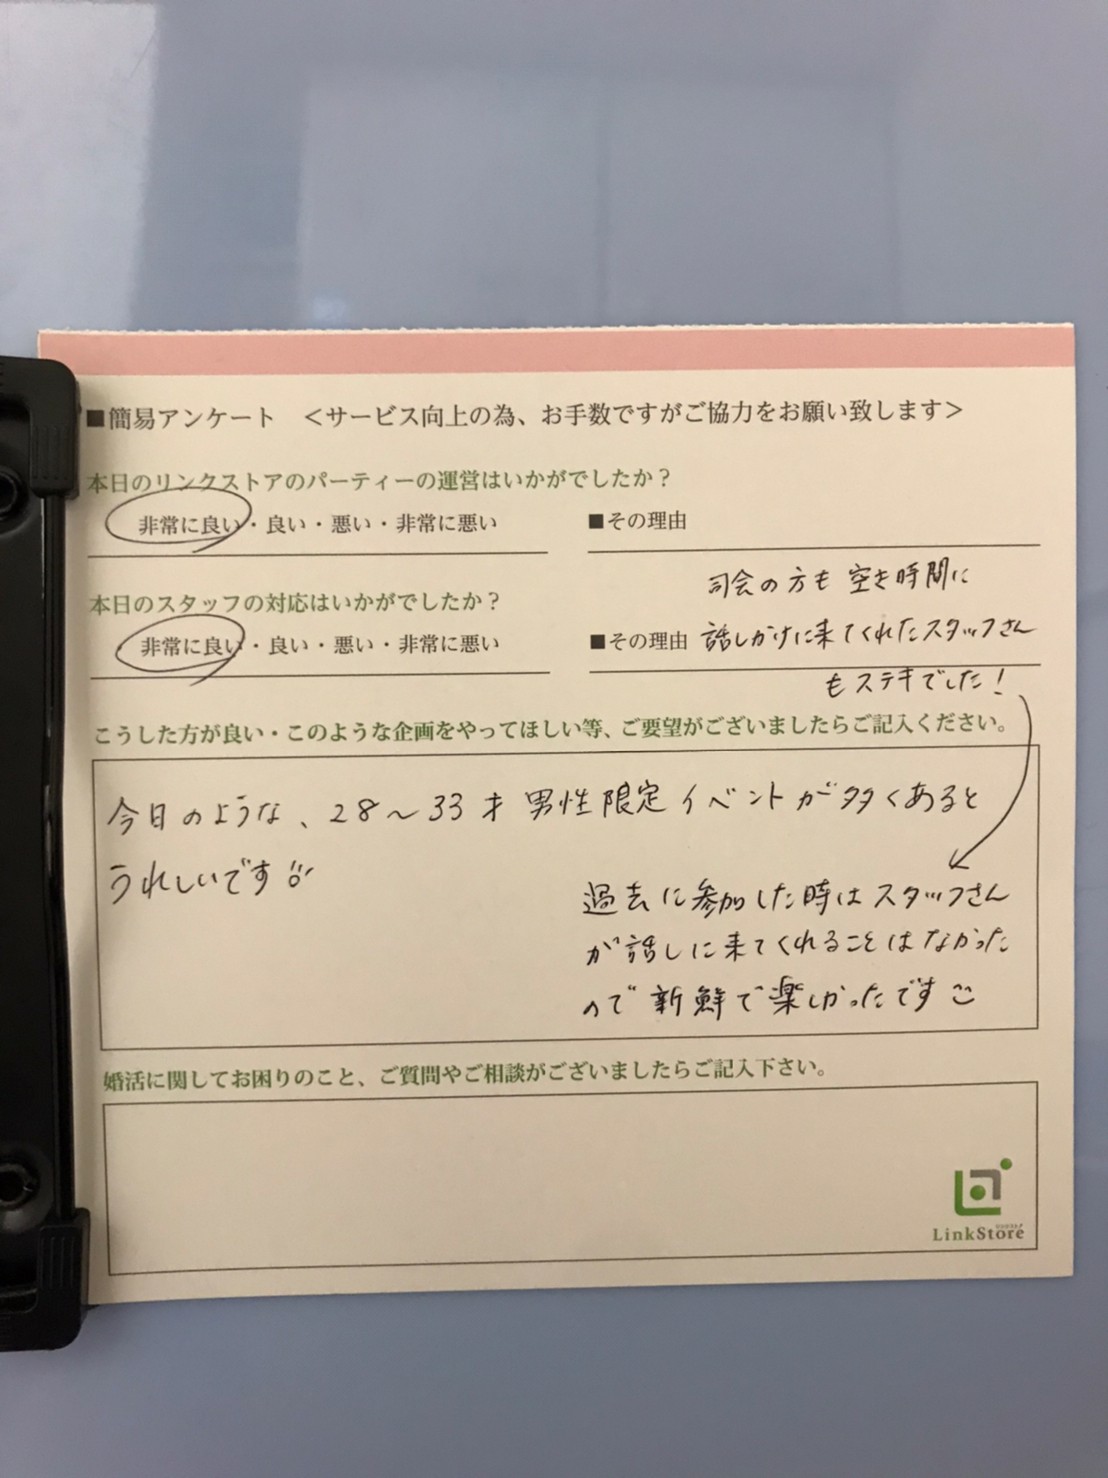 ■簡易アンケート ＜サービス向上の為、お手数ですがご協力をお願い致します＞
本日のリンクストアのパーティーの運営はいかがでしたか？
非常に良い・良い・悪い・非常に悪い
■その理由
本日のスタッフの対応はいかがでしたか？
非常に良い・良い・悪い・非常に悪い
司会の方も 空き時間に
■その理由 話しかけに来てくれたスタッフさん
もステキでした！
こうした方が良い・このような企画をやってほしい等、ご要望がございましたらご記入ください。
今日のような、28～33才 男性限定イベントが多くあると
うれしいです
過去に参加した時はスタッフさん
が話しに来てくれることはなかった
ので新鮮で楽しかったです
婚活に関してお困りのこと、ご質問やご相談がございましたらご記入下さい。
LinkStore